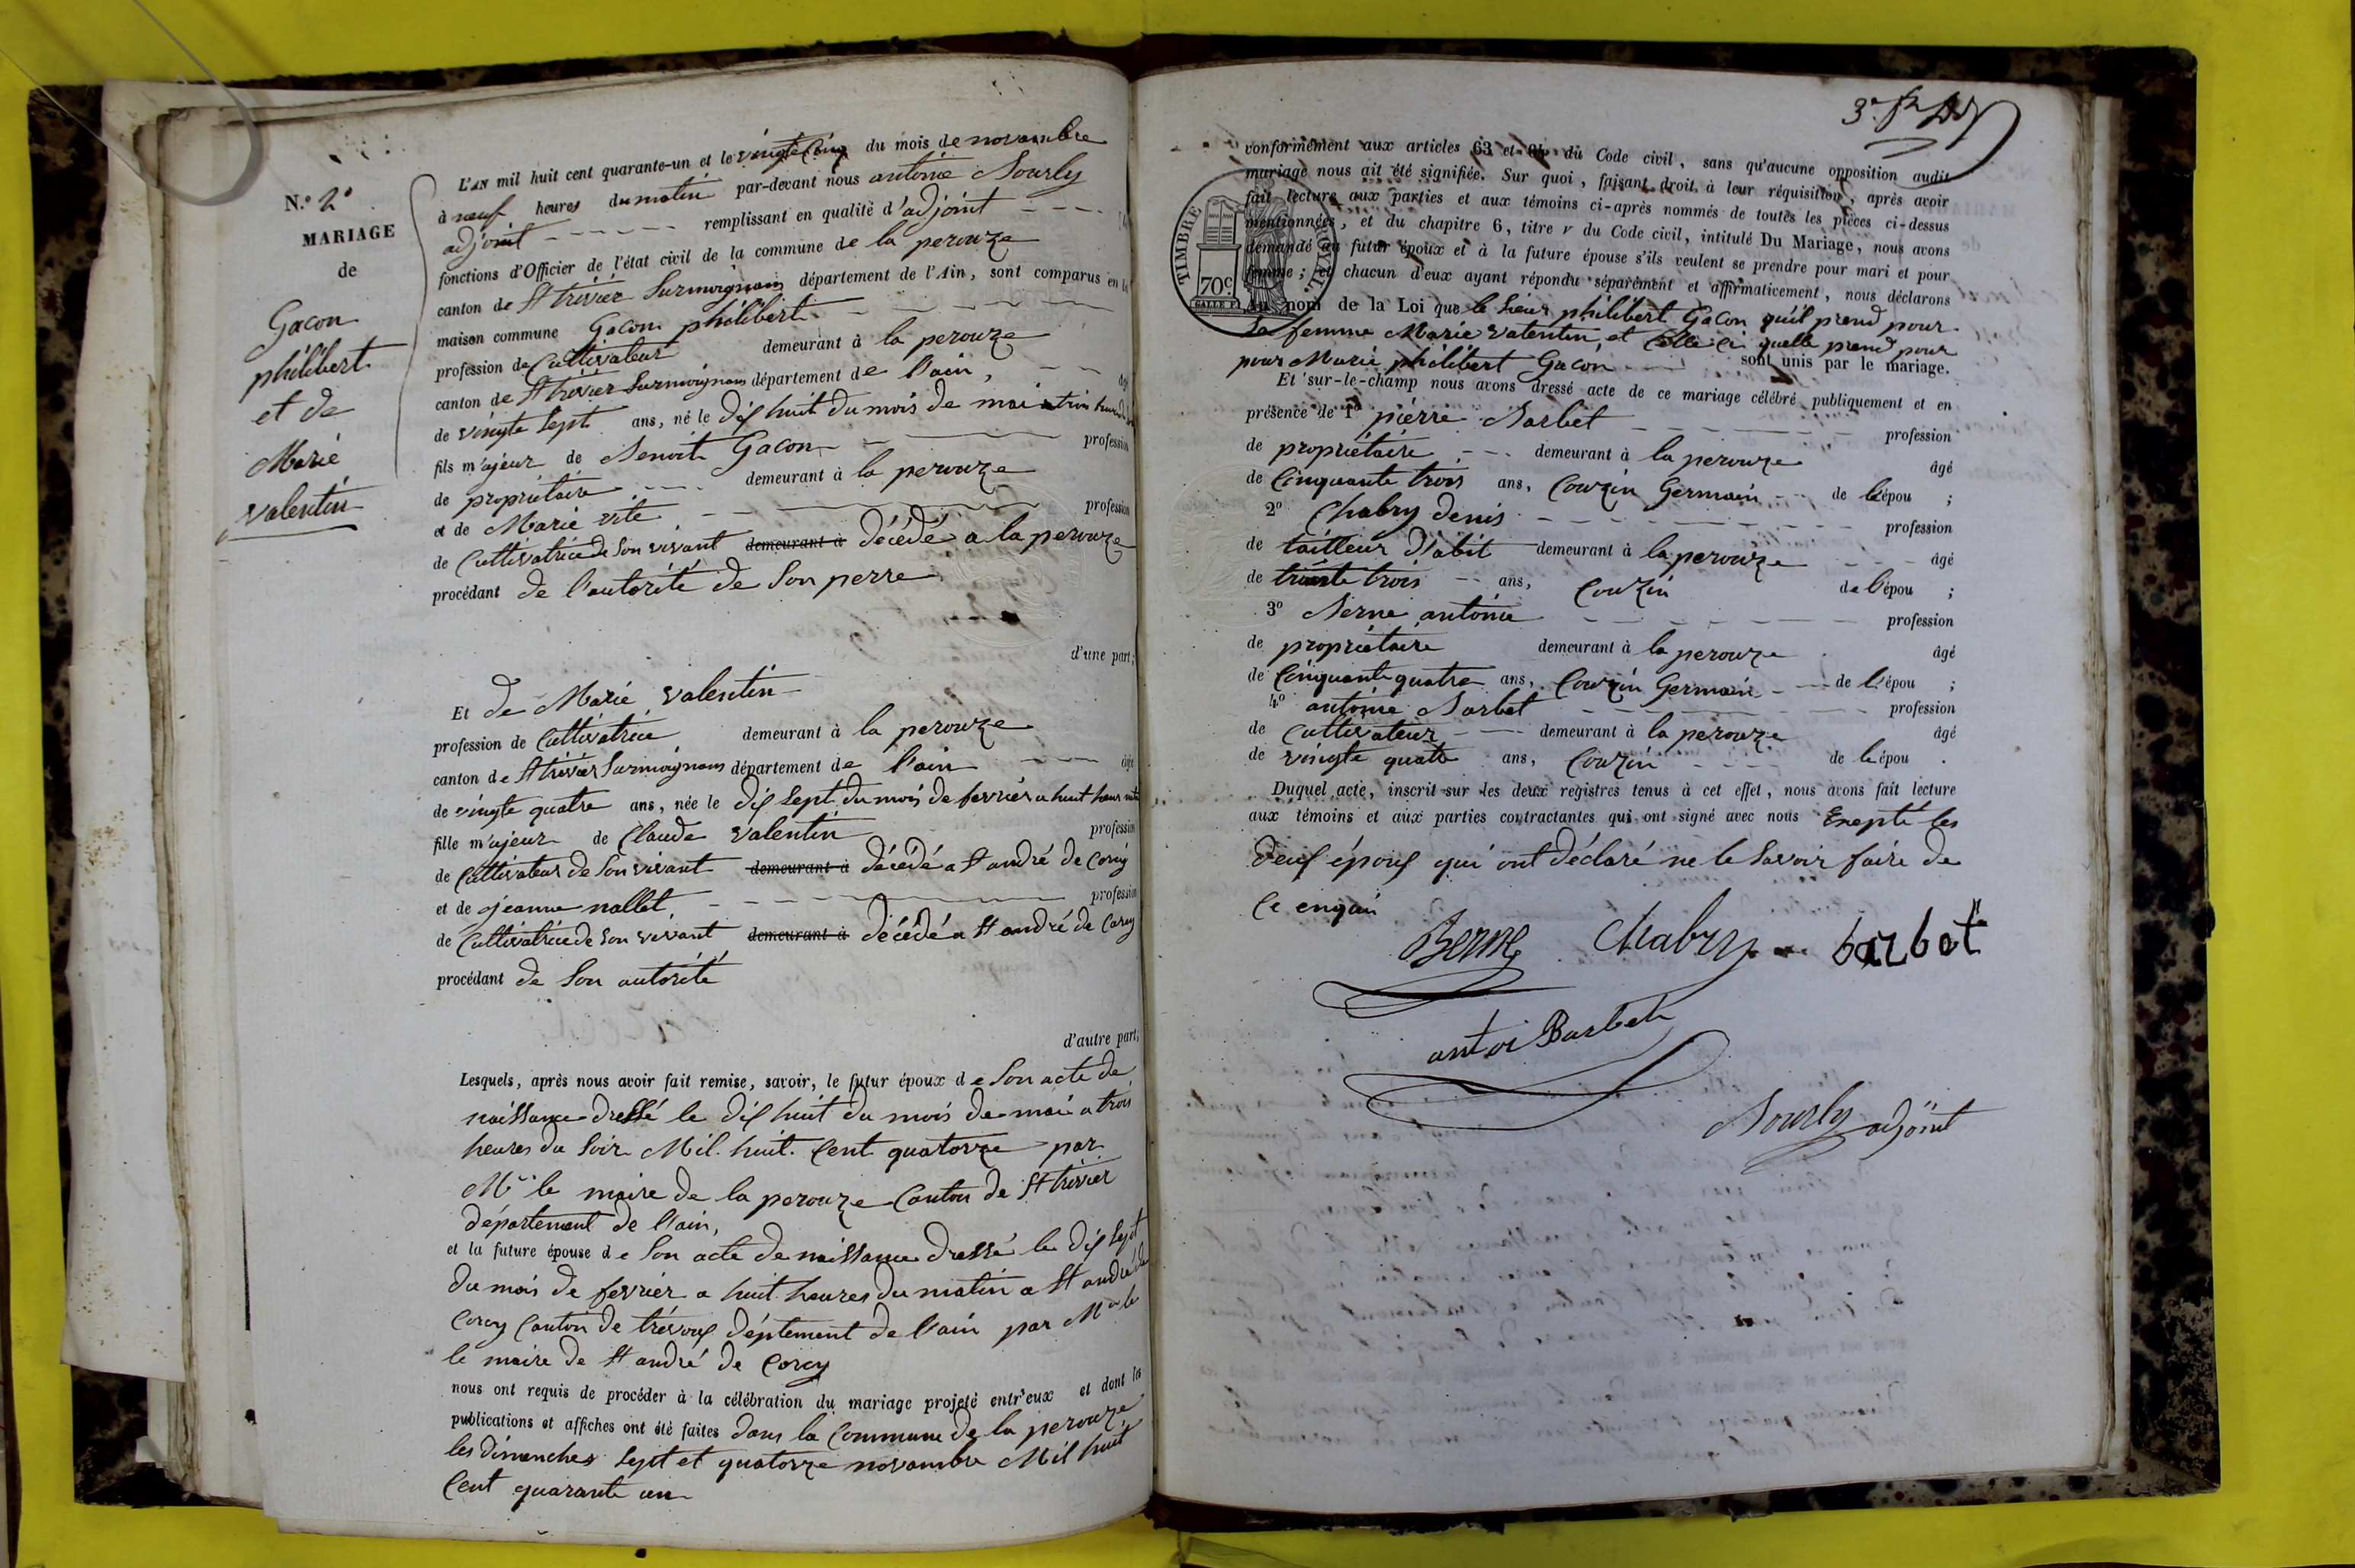 N.o 2o
MARIAGE
de
Gacon
philibert
et de
Marie
valentin
L'AN mil huit cent quarante-un et le vingte Cinq du mois de novambre
à neuf heures du matin par-devant nous antoine Bourly
adjoint remplissant en qualité d'adjoint
fonctions d'Officier de l'état civil de la commune de la perouze
canton de St trivier Surmoignans département de l'Ain, sont comparus en la
maison commune Gacon philibert
profession de Cultivateur demeurant à la perouze
canton de St trivier Surmoignans département de l'ain, âgé
de vingte Sept ans, né le dix huit du mois de mai a trois heures du
fils majeur de Benoit Gacon profession
de propriétaire demeurant à la perouze
et de Marie vite profession
de Cultivatrice de Son vivant demeurant à décédé a la perouze
procédant de l'autorité de Son perre
d'une part;
Et de Marie valentin
profession de Cultivatrice demeurant à la perouze
canton de St trivier Surmoignans département de l'ain âgé
de vingte quatre ans, née le dix Sept du mois de fevrier a huit heures
fille majeur de Claude valentin profession
de Cultivateur de Son vivant demeurant à décédé a St andré de Corcy
et de jeanne nallet profession
de Cultivatrice de Son vivant demeurant à décédé a St andré de Corcy
procédant de Son autorité
d'autre part;
Lesquels, après nous avoir fait remise, savoir, le futur époux de Son acte de
naissance dressé le dix huit du mois de mai a trois
heures du Soir Mil huit Cent quatorze par
Mr le maire de la perouze Canton de St trivier
département de l'ain,
et la future épouse de Son acte de naissance dressé le dix Sept
du mois de fevrier a huit heures du matin a St andré de
Corcy Canton de trévoux déptement de l'ain par Mr le
le maire de St andré de Corcy
nous ont requis de procéder à la célébration du mariage projeté entr'eux et dont les
publications et affiches ont été faites dans la Commune de la perouze
les dimenches Sept et quatorze novambre Mil huit
Cent quarante un
3e
conformément aux articles 63 et 64 du Code civil, sans qu'aucune opposition audit
mariage nous ait été signifiée. Sur quoi, faisant droit à leur réquisition, après avoir
fait lecture aux parties et aux témoins ci-après nommés de toutes les pièces ci-dessus
mentionnées, et du chapitre 6, titre v du Code civil, intitulé Du Mariage, nous avons
demandé au futur époux et à la future épouse s'ils veulent se prendre pour mari et pour
femme; et chacun d'eux ayant répondu séparément et affirmativement, nous déclarons
Au nom de la Loi que le Sieur philibert Gacon qu'il prend pour
Sa femme Marie valentin et Celle Ci quelle prend pour
pour Marie philibert Gacon sont unis par le mariage.
TIMBRE ROYAL.
70c.
Et sur-le-champ nous avons dressé acte de ce mariage célébré publiquement et en
présence de 1o pierre Barbet profession
de propriétaire demeurant à la perouze âgé
de Cinquante trois ans, Couzin Germain de l'épou ;
2o Chabry denis profession
de tailleur D'abit demeurant à la perouze âgé
de trente trois ans, Couzin de l'épou ;
3o Berne antoine profession
de propriétaire demeurant à la perouze âgé
de Cinquante quatre ans, Couzin Germain de l'épou ;
4o antoine Barbet profession
de Cultivateur demeurant à la perouze âgé
de vingte quatre ans, Couzin de l'épou .
Duquel acte, inscrit sur les deux registres tenus à cet effet, nous avons fait lecture
aux témoins et aux parties contractantes qui ont signé avec nous Exepté les
deux époux qui ont déclaré ne le Savoir faire de
Ce enquis
Berne Chabry barbet
antoi Barbet
Bourly adjoint